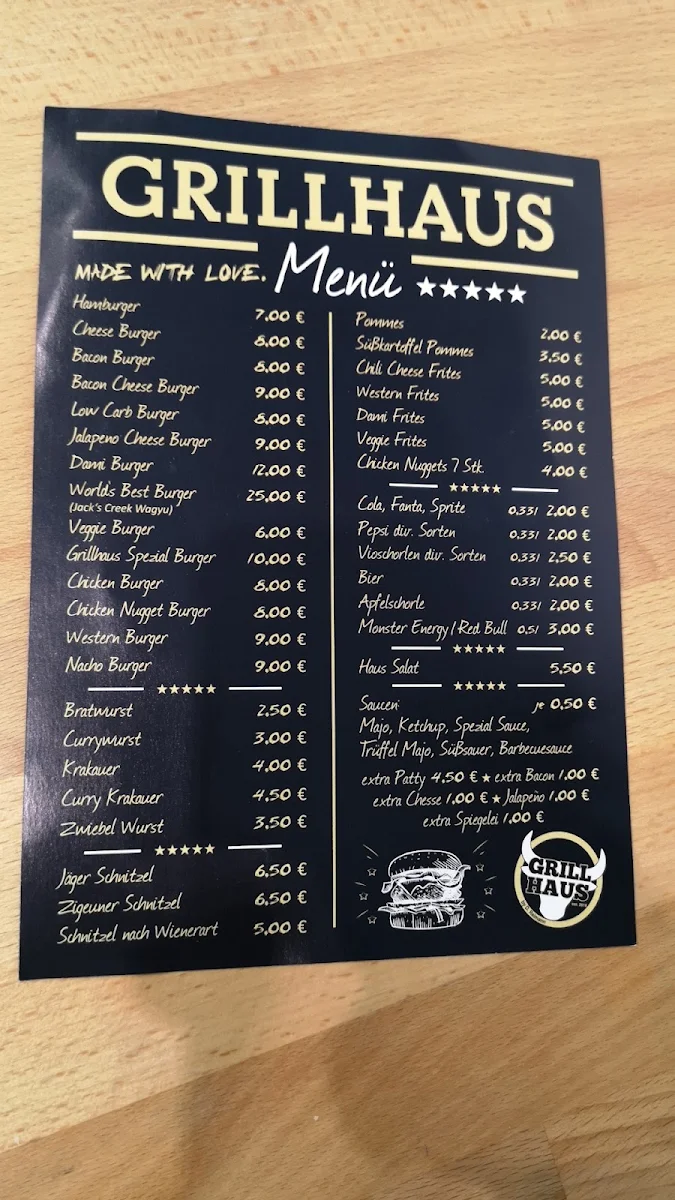 GRILLHAUS
MADE WITH LOVE. Menü
Hamburger 7,00 €
Cheese Burger 8,00 €
Bacon Burger 8,00 €
Bacon Cheese Burger 9,00 €
Low Carb Burger 8,00 €
Jalapeno Cheese Burger 9,00 €
Dami Burger 12,00 €
World's Best Burger 25,00 €
(Jack's Creek Wagyu)
Veggie Burger 6,00 €
Grillhaus Spezial Burger 10,00 €
Chicken Burger 8,00 €
Chicken Nugget Burger 8,00 €
Western Burger 9,00 €
Nacho Burger 9,00 €
Bratwurst 2,50 €
Currywurst 3,00 €
Krakauer 4,00 €
Curry Krakauer 4,50 €
Zwiebel Wurst 3,50 €
Jäger Schnitzel 6,50 €
Zigeuner Schnitzel 6,50 €
Schnitzel nach Wienerart 5,00 €
Pommes 2,00 €
Süßkartoffel Pommes 3,50 €
Chili Cheese Frites 5,00 €
Western Frites 5,00 €
Dami Frites 5,00 €
Veggie Frites 5,00 €
Chicken Nuggets 7 Stk. 4,00 €
Cola, Fanta, Sprite 0,33l 2,00 €
Pepsi div. Sorten 0,33l 2,00 €
Vioschorlen div. Sorten 0,33l 2,50 €
Bier 0,33l 2,00 €
Apfelschorle 0,33l 2,00 €
Monster Energy/Red Bull 0,5l 3,00 €
Haus Salat 5,50 €
Saucen: je 0,50 €
Majo, Ketchup, Spezial Sauce,
Trüffel Majo, Süßsauer, Barbecuesauce
extra Patty 4,50 € ★ extra Bacon 1,00 €
extra Chesse 1,00 € ★ Jalapeño 1,00 €
extra Spiegelei 1,00 €
GRILL
HAUS